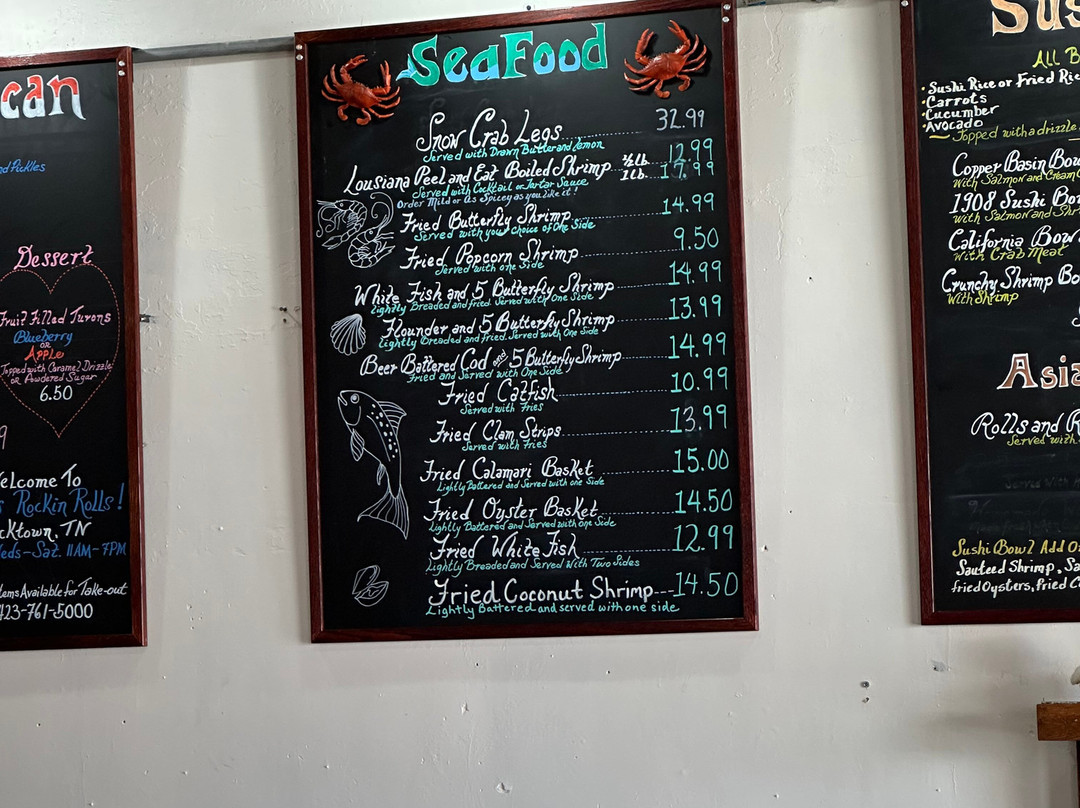 can
nd Pickles
Dessert
Fruit Filled Turons
Blueberry
OR
Apple
Topped with Caramel Drizzle
OR Powdered Sugar
6.50
9
elcome To
s Rockin Rolls!
cktown, TN
eds-Sat. 11AM-7PM
Items Available for Take-out
423-761-5000
SeaFood
Snow Crab Legs 32.99
Served with Drawn Butter and Lemon
Lousiana Peel and Eat Boiled Shrimp ½ lb. 12.99
1 lb. 17.99
Served with Cocktail or Tartar Sauce
Order Mild or as Spicey as you like it!
Fried Butterfly Shrimp 14.99
Served with your choice of One Side
Fried Popcorn Shrimp 9.50
Served with one Side
White Fish and 5 Butterfly Shrimp 14.99
Lightly Breaded and fried. Served with One Side
Flounder and 5 Butterfly Shrimp 13.99
Lightly Breaded and fried. Served with One Side
Beer Battered Cod and 5 Butterfly Shrimp 14.99
Fried and Served with One Side
Fried Catfish 10.99
Served with Fries
Fried Clam Strips 13.99
Served with Fries
Fried Calamari Basket 15.00
Lightly Battered and Served with one Side
Fried Oyster Basket 14.50
Lightly Battered and Served with one Side
Fried White Fish 12.99
Lightly Breaded and Served With Two Sides
Fried Coconut Shrimp 14.50
Lightly Battered and served with one side
Sus
All B
• Sushi Rice or Fried Rice
• Carrots
• Cucumber
• Avocado
Topped with a drizzle
Copper Basin Bow
With Salmon and Cream C
1908 Sushi Bow
With Salmon and Shr
California Bow
With Crab Meat
Crunchy Shrimp Bo
With Shrimp
Asia
Rolls and R
Served with
Sushi Bowl Add O
Sauteed Shrimp, Sa
fried Oysters, fried C